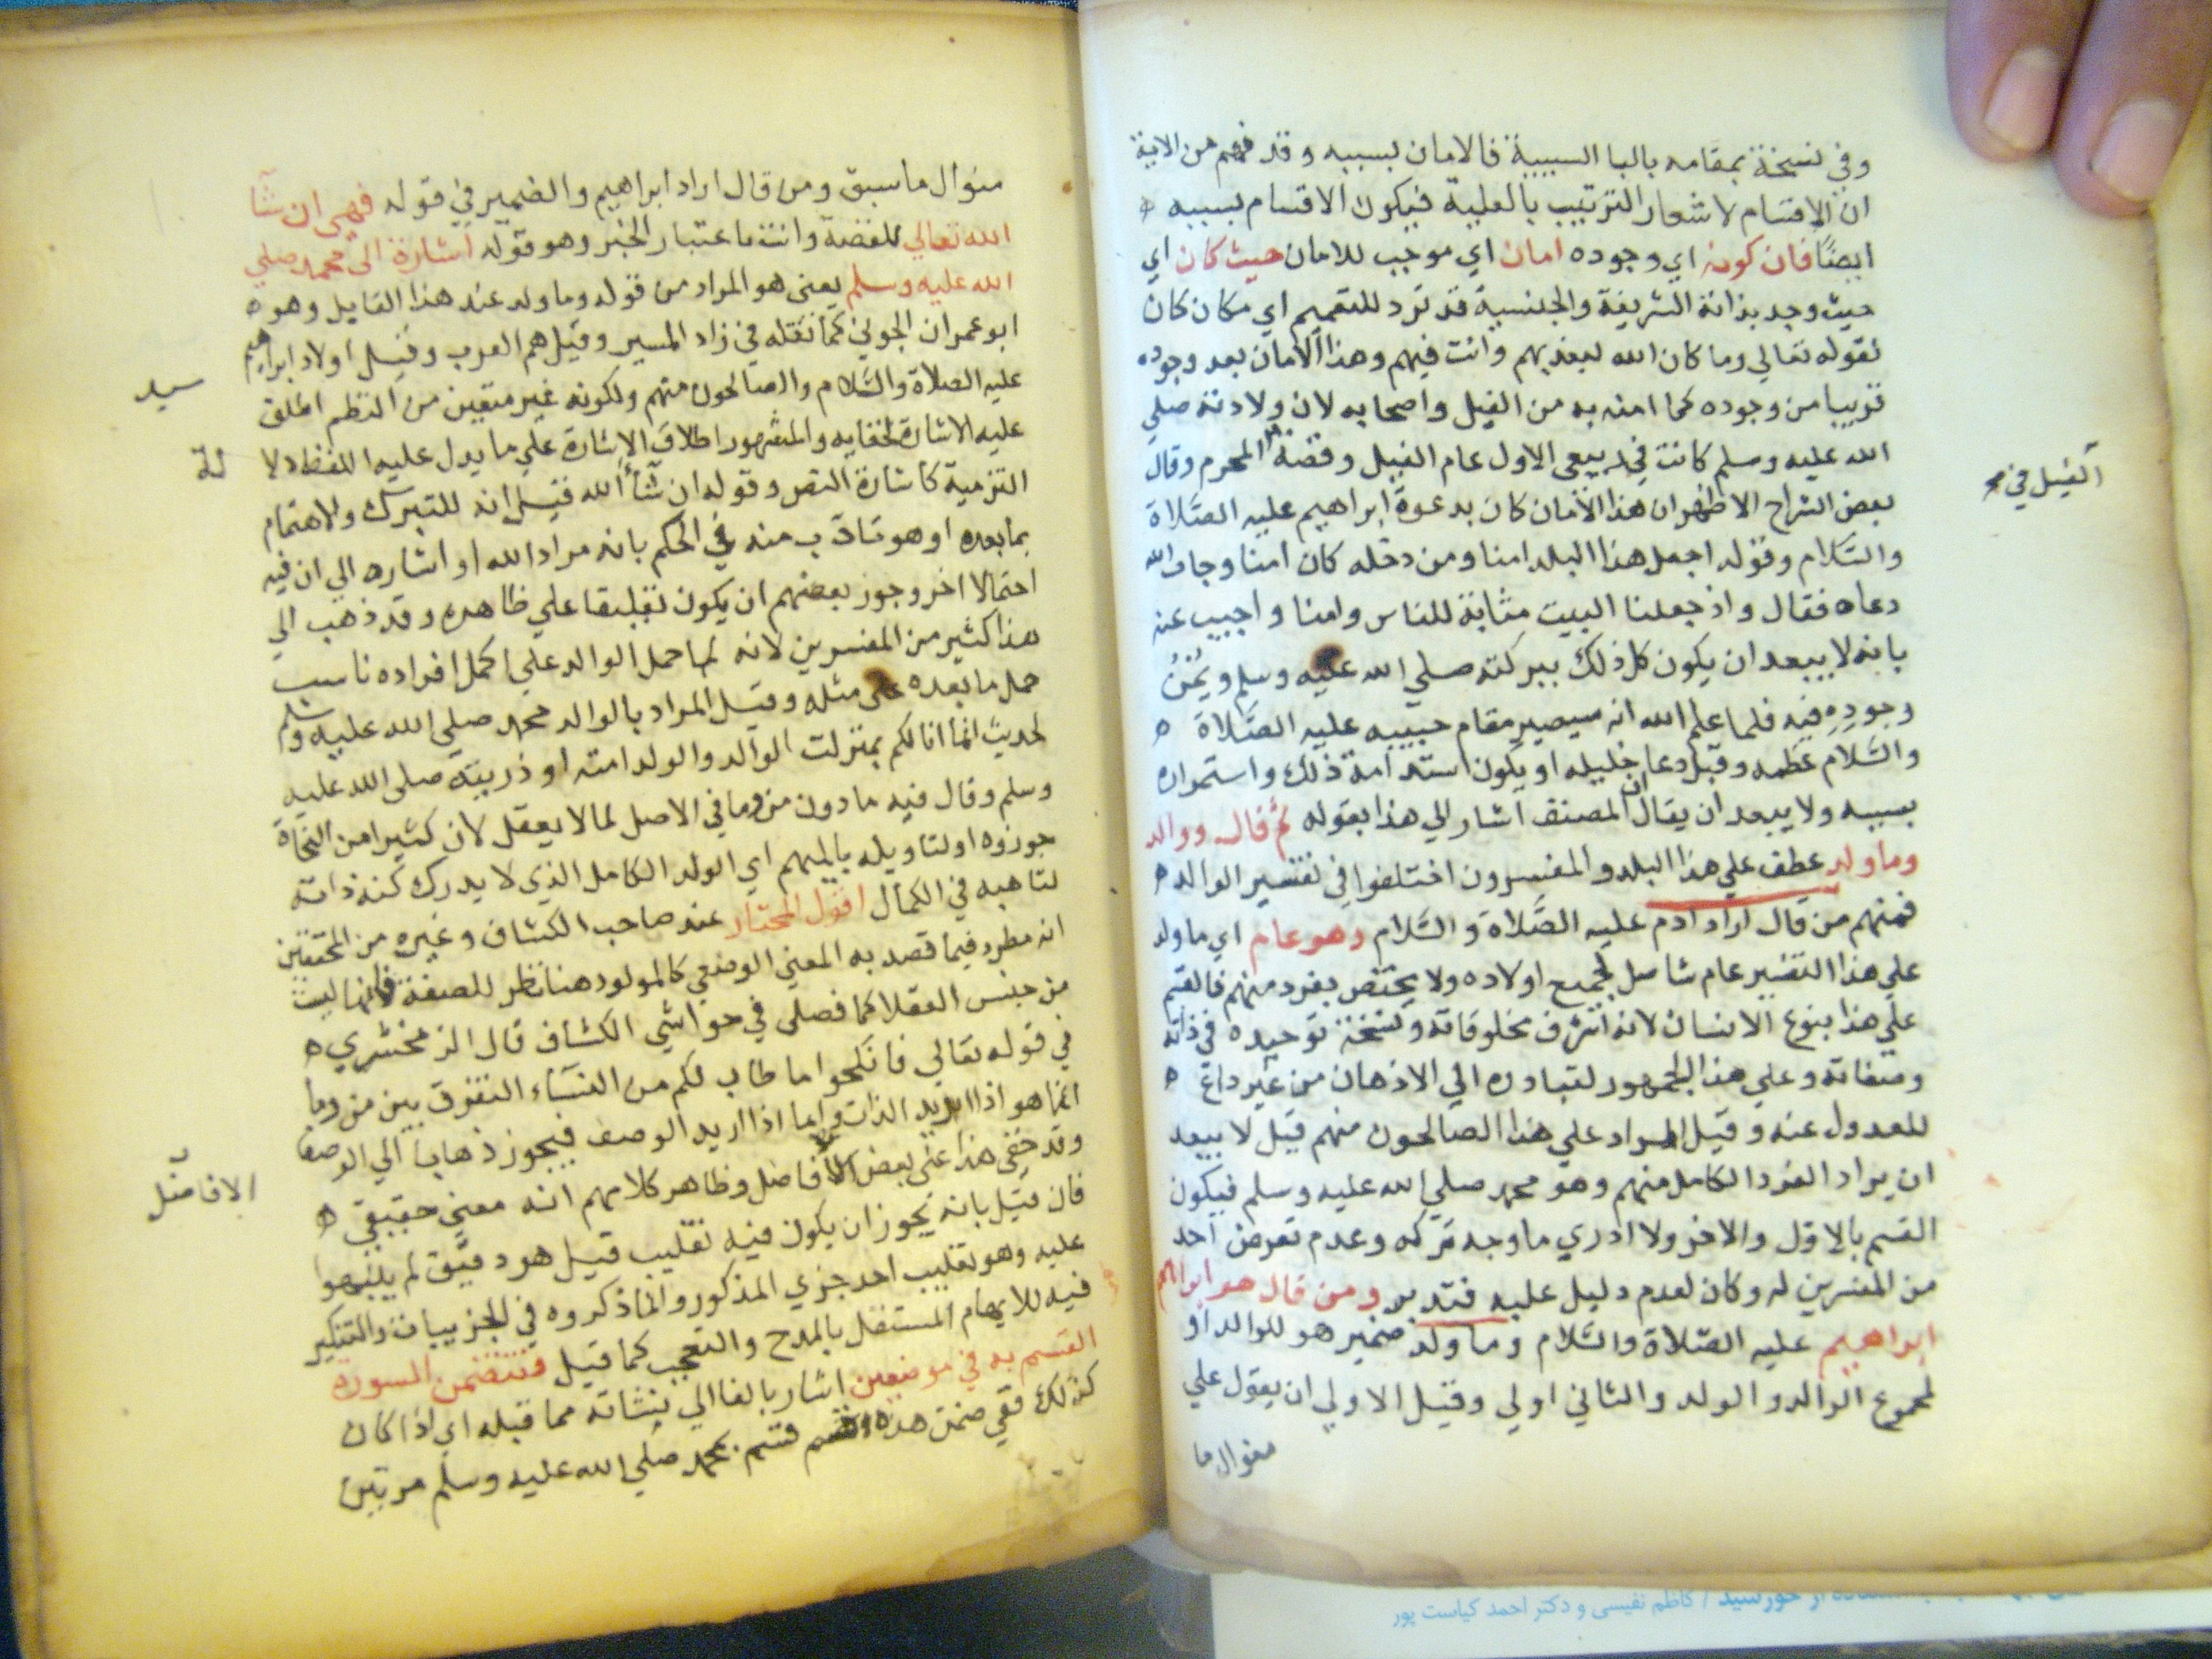 وفي نسخة بمقامه بالبا السببية فالامان بسببه وقد فهم من الاية
ان الاقسام لاشعار الترتيب بالعلية فيكون الاقسام بسببه
ايضًا فان كونه اي وجوده امان اي موجب للامان حيث كان اي
حيث وجد بذاته الشريفة والجنسية قد ترد للتعميم اي مكان كان
لقوله تعالي وما كان الله ليعذبهم وانت فيهم وهذا الامان بعد وجوده
قريبا من وجوده كما امنه به من الفيل واصحابه لان ولادته صلي
الله عليه وسلم كانت في ربيع الاول عام الفيل وقصة المحرم وقال
الفيل في
بعض الشراح الاظهر ان هذا الامان كان بدعوة ابراهيم عليه الصَّلاة
والسَّلام وقوله اجعل هذا البلد امنا ومن دخله كان امنا وجاب الله
دعاه فقال واذ جعلنا البيت مثابة للناس وامنا واجيب عنه
بانه لا يبعد ان يكون كل ذلك ببركته صلي الله عليه وسلم ويُمْنُ
وجودِهِ فيه فلما علم الله انه سيصير مقام حبيبه عليه الصَّلاة
والسَّلام عظمه وقبل دعا خليله او يكون استدامة ذلك واستمراره
بسببه ولا يبعد ان يقال ان المصنف اشار الي هذا بقوله ثم قال ووالد
وما ولد عطف علي هذا البلد والمفسرون اختلفوا في تفسير الوالد
فمنهم من قال اراد ادم عليه الصَّلاة والسَّلام وهو عام اي ما ولد
علي هذا التفسير عام شامل لجميع اولاده ولا يختص بفرد منهم فالقسم
علي هذا بنوع الانسان لانه اشرف مخلوقاته ونسخة توحيده في ذاته
وصفاته وعلي هذا الجمهور لتبادره الي الاذهان من غير داع
للعدول عنه وقيل المراد علي هذا الصالحون منهم قيل لا يبعد
ان يراد الفرد الكامل منهم وهو محمد صلي الله عليه وسلم فيكون
القسم بالاول والاخر ولا ادري ما وجه تركه وعدم تعرض احد
من المفسرين له وكان لعدم دليل عليه فتدبر ومن قال هو ابراهيم
ابراهيم عليه الصّلاة والسَّلام وما ولد ضمير هو للوالد او
لمجموع الوالد والولد والثاني اولي وقيل الاولي ان يقول علي
منوال ما
منوال ما سبق ومن قال اراد ابراهيم والضمير في قوله فهي ان شآ
الله تعالي للقصة وانثه باعتبار الخبر وهو قوله اشارة الي محمد صلي
الله عليه وسلم يعني هو المراد من قوله وما ولد عند هذا القايل وهو
ابو عمران الجوني كما نقله في زاد المسير وقيل هم العرب وقيل اولاد ابراهيم
عليه الصلاة والسَّلام والصالحون منهم ولكونه غير متعين من النظم اطلق
عليه الاشارة لخفايه والمشهور اطلاق الاشارة علي ما يدل عليه اللفظ دلا
لة
التزمية كاشارة النص وقوله ان شآء الله قيل انه للتبرك والاهتمام
بما بعده او هو تادب منه في الحكم بانه مراد الله او اشاره الي ان فيه
احتمالا اخر وجوز بعضهم ان يكون تعليقا علي ظاهره وقد ذهب الي
هذا كثير من المفسرين لانه لما حمل الوالد علي اكمل افراده ناسب
حمل ما بعده على مثله وقيل المراد بالوالد محمد صلي الله عليه وسلم
لحديث انما انا لكم بمنزلت الوالد والولد امته او ذريته صلي الله عليه
وسلم وقال فيه ما دون من وما في الاصل لما لا يعقل لان كثيرا من النحاة
جوزوه اولتاويله بالمبهم اي الولد الكامل الذي لا يدرك كنه ذاته
لتناهيه في الكمال اقول المختار عند صاحب الكشاف وغيره من المحققين
انه مطرد فيما قصد به المعني الوصفي كالمولود هنا نظر للصفة فانها ليست
من جنس العقلا كما فصل في حواشي الكشاف قال الزمخشري
في قوله تعالي فانكحوا ما طاب لكم من النسآء التفرق بين من وما
انما هو اذا اريد الذات واما اذا اريد الوصف فيجوز ذهابا الي الوصف
وقد خفي هذا علي بعض الافاضل وظاهر كلامهم انه معني حقيقي
الافاضل
فان قيل بانه يجوز ان يكون فيه تغليب قيل هو دقيق لم ينبهوا
عليه وهو تغليب احد جزي المذكور وانما ذكروه في الجزييات والتنكير
فيه للابهام المستقل بالمدح والتعجب كما قيل فتتضمن السورة
القسم به في موضعين اشار بالفا الي ينشاته مما قبله اي اذا كان
كذلك ففي ضمن هذه القسم قسم بمحمد صلي الله عليه وسلم مرتين
كاظم نفیسی و دکتر احمد کیاست پور